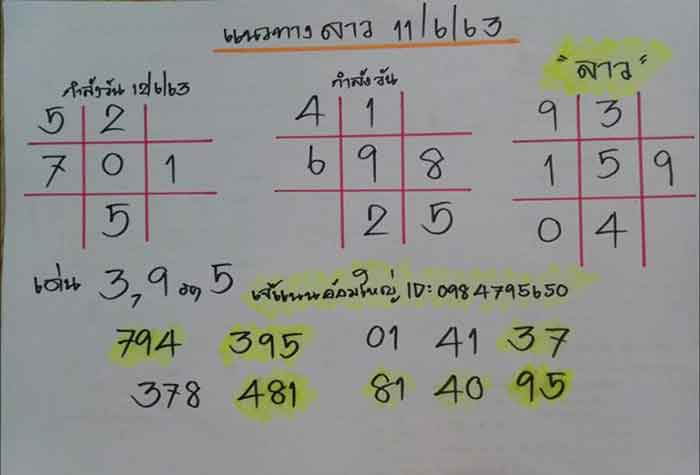 แนวทางลาว 11/6/63
กำลังวัน 12/6/63
5 2
7 0 1
5
กำลังวัน
4 1
6 9 8
2 5
"ลาว"
9 3
1 5 9
0 4
เด่น 3,9 5 เจ๊แนนอ้อมใหญ่ ID: 0984795650
794 395 01 41 37
378 481 81 40 95